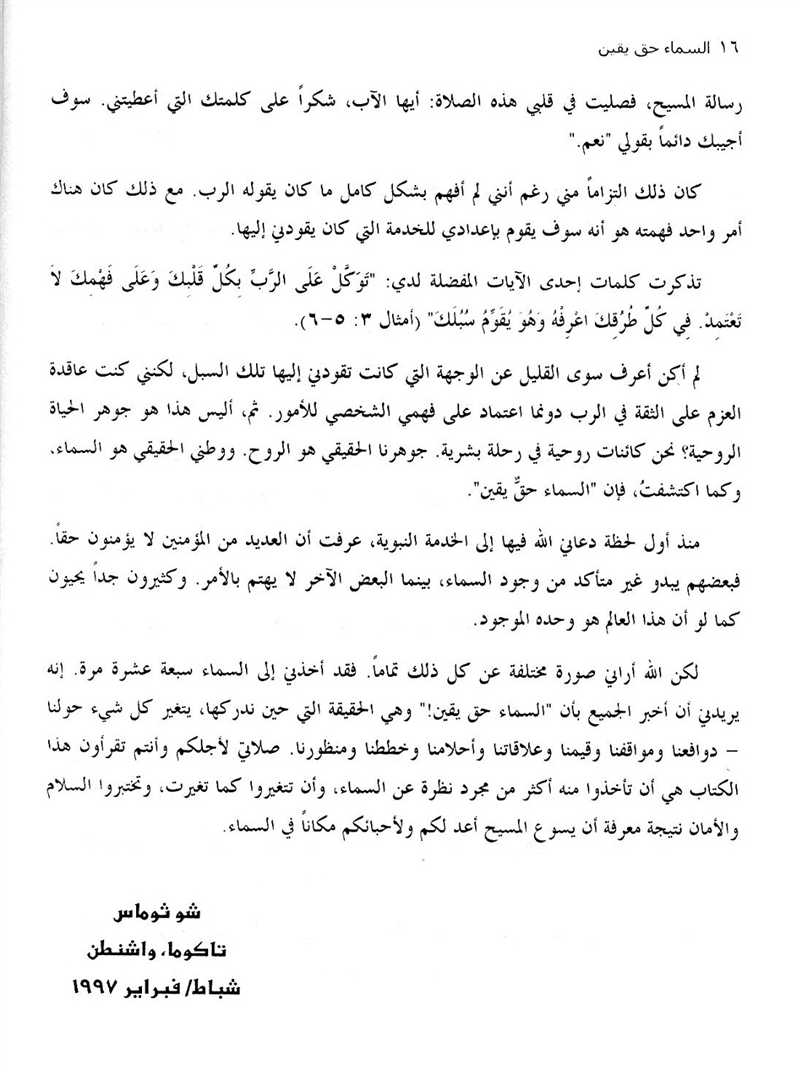 ١٦ السماء حق يقين
رسالة المسيح، فصليت في قلبي هذه الصلاة: أيها الآب، شكراً على كلمتك التي أعطيتني. سوف
أجيبك دائماً بقولي "نعم."
كان ذلك التزاماً مني رغم أنني لم أفهم بشكل كامل ما كان يقوله الرب. مع ذلك كان هناك
أمر واحد فهمته هو أنه سوف يقوم بإعدادي للخدمة التي كان يقودني إليها.
تذكرت كلمات إحدى الآيات المفضلة لدي: "تَوَكَّلْ عَلَى الرَّبِّ بِكُلِّ قَلْبِكَ وَعَلَى فَهْمِكَ لاَ
تَعْتَمِدْ. فِي كُلِّ طُرُقِكَ اعْرِفْهُ وَهُوَ يُقَوِّمُ سُبُلَكَ" (أمثال ٣: ٥-٦).
لم أكن أعرف سوى القليل عن الوجهة التي كانت تقودني إليها تلك السبل، لكنني كنت عاقدة
العزم على الثقة في الرب دونما اعتماد على فهمي الشخصي للأمور. ثم، أليس هذا هو جوهر الحياة
الروحية؟ نحن كائنات روحية في رحلة بشرية. جوهرنا الحقيقي هو الروح. ووطني الحقيقي هو السماء،
وكما اكتشفتُ، فإن "السماء حقٌّ يقين".
منذ أول لحظة دعاني الله فيها إلى الخدمة النبوية، عرفت أن العديد من المؤمنين لا يؤمنون حقاً.
فبعضهم يبدو غير متأكد من وجود السماء، بينما البعض الآخر لا يهتم بالأمر. وكثيرون جداً يحيون
كما لو أن هذا العالم هو وحده الموجود.
لكن الله أراني صورة مختلفة عن كل ذلك تماماً. فقد أخذني إلى السماء سبعة عشرة مرة. إنه
يريدني أن أخبر الجميع بأن "السماء حق يقين!" وهي الحقيقة التي حين ندركها، يتغير كل شيء حولنا
– دوافعنا ومواقفنا وقيمنا وعلاقاتنا وأحلامنا وخططنا ومنظورنا. صلاتي لأجلكم وأنتم تقرأون هذا
الكتاب هي أن تأخذوا منه أكثر من مجرد نظرة عن السماء، وأن تتغيروا كما تغيرت، وتختبروا السلام
والأمان نتيجة معرفة أن يسوع المسيح أعد لكم ولأحبائكم مكاناً في السماء.
شو ثوماس
تاكوما، واشنطن
شباط/ فبراير ١٩٩٧